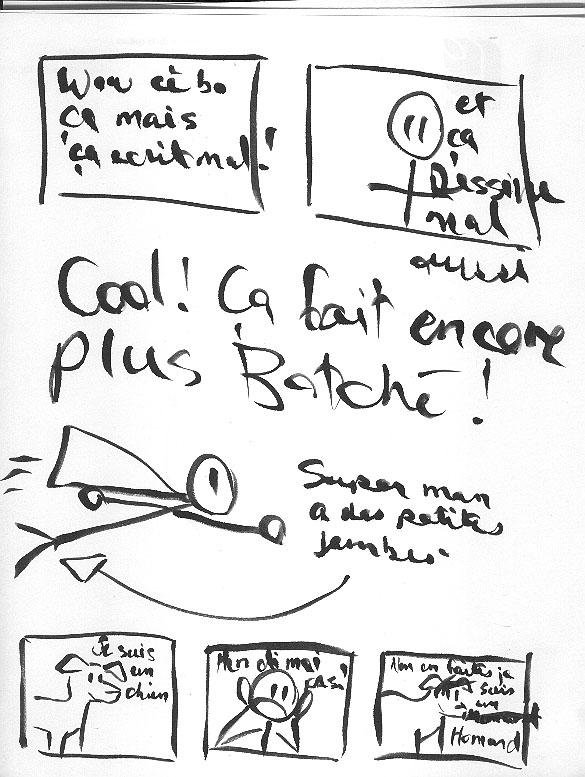 Wou cè bo
ça mais
ça ecrit mal!
et
ça
Dessine
mal
aussi
Cool! Ça fait encore
plus Batché!
Super man
a des petites
jambes
Je suis
un
chien
Non di moi
pas ça!
en faites je
suis
un
Homard